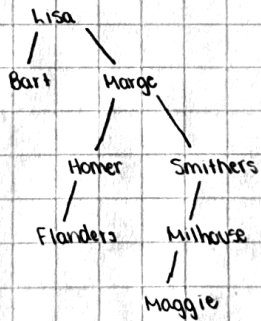 Lisa
Bart Marge
Homer Smithers
Flanders Milhouse
Maggie